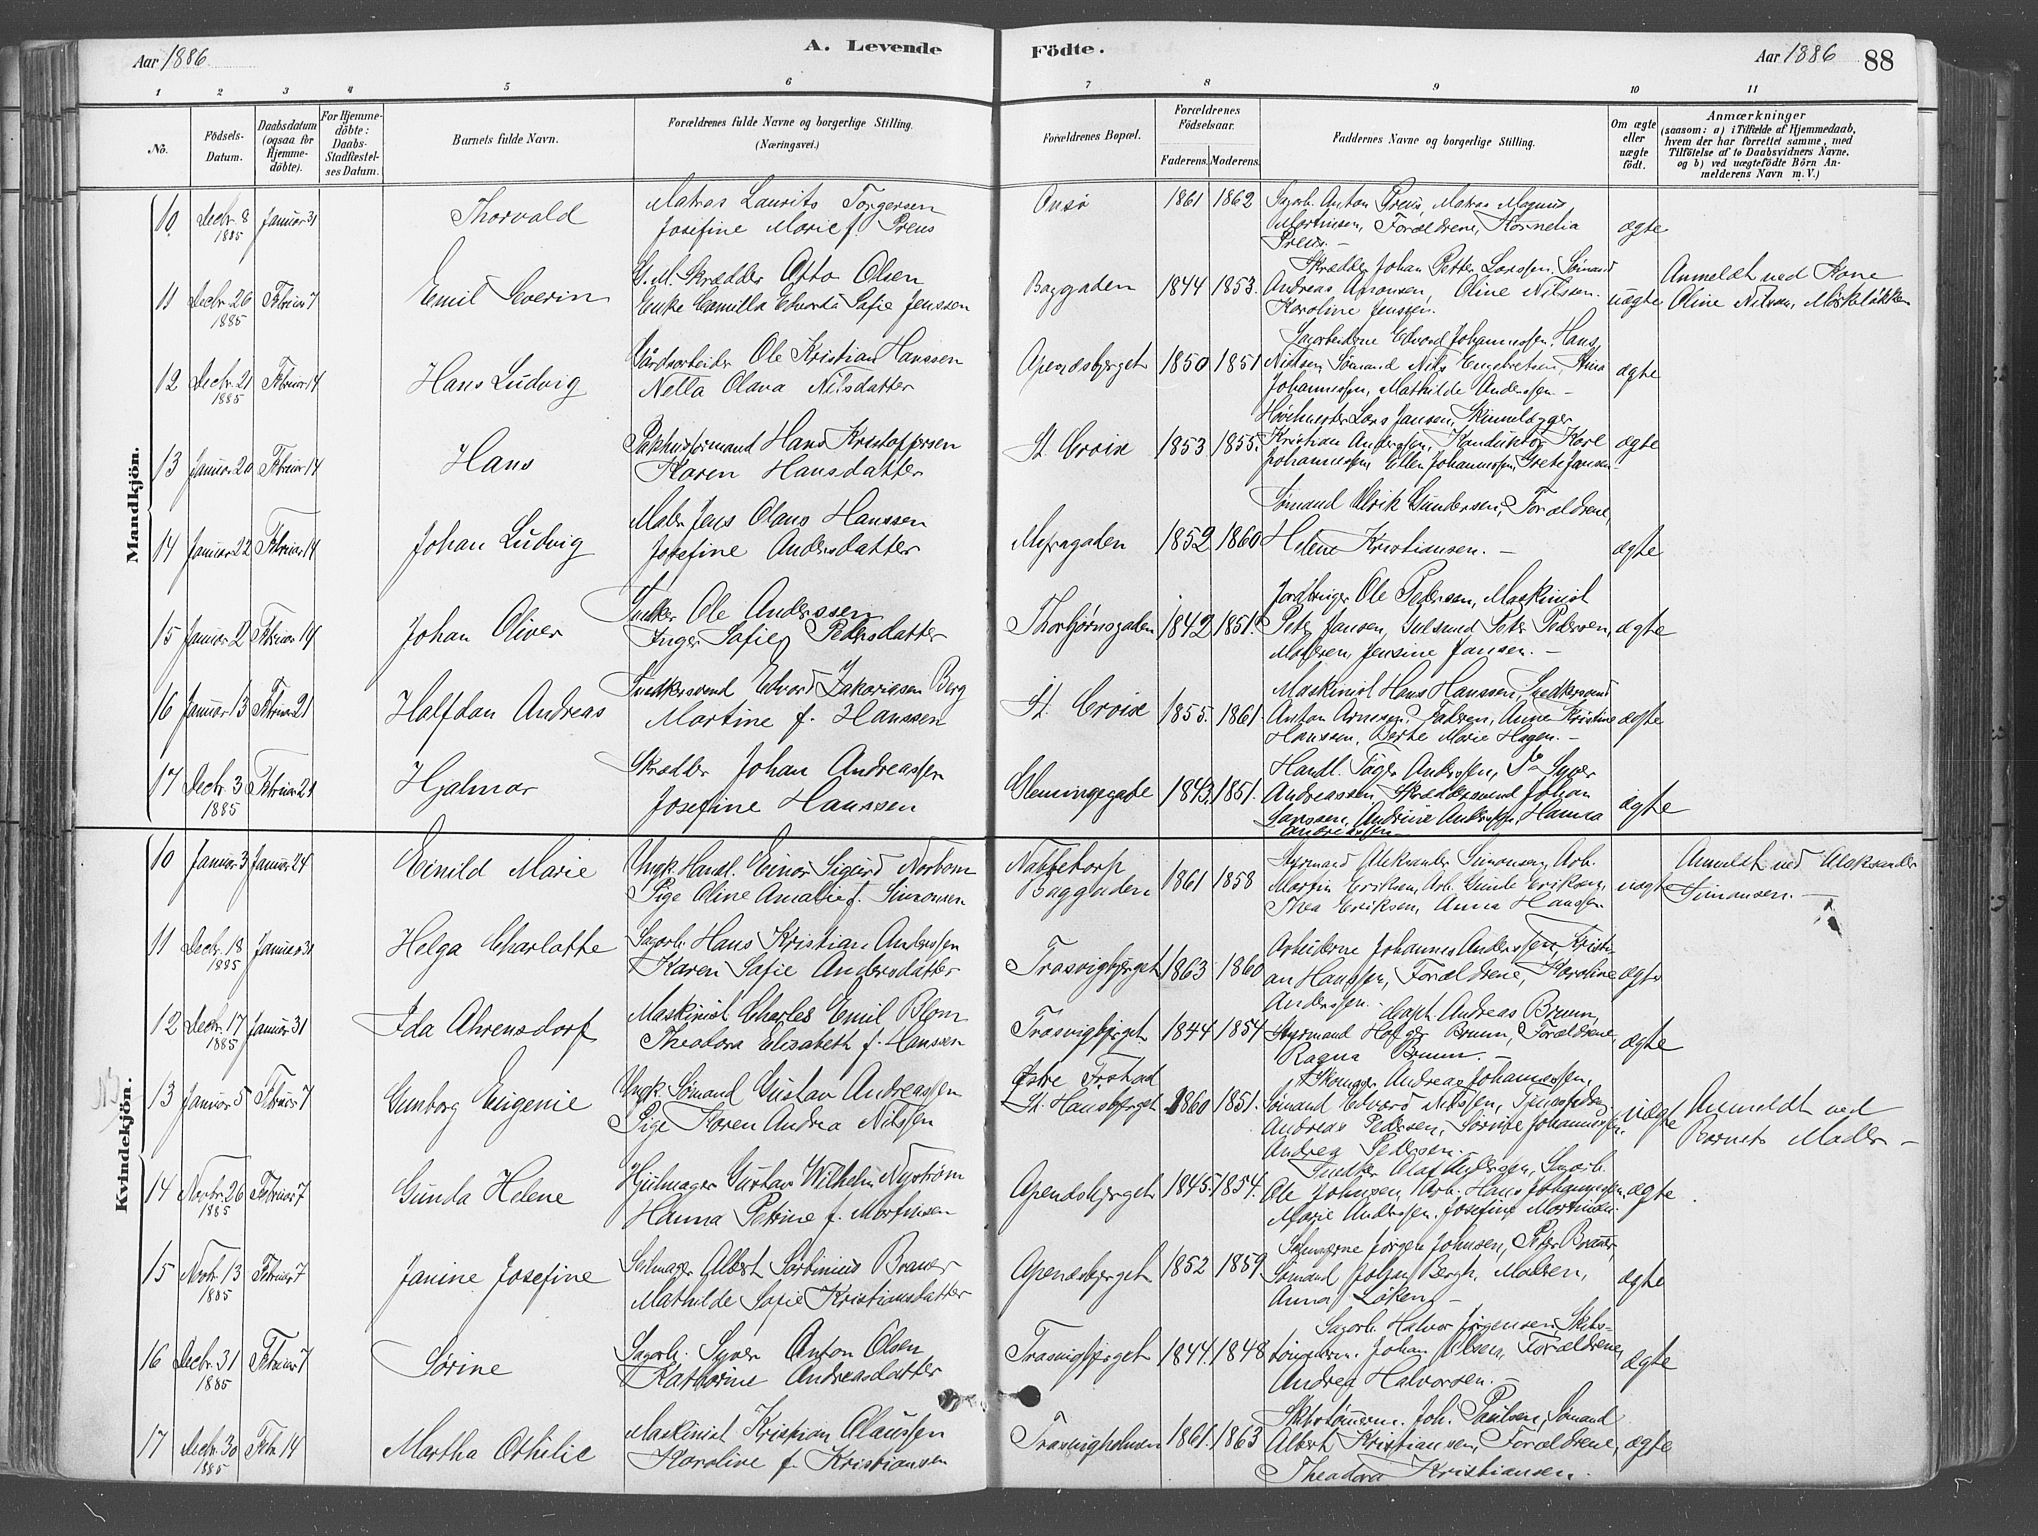 Aar 1886
A. Levende
Födte.
Aar 1886
88
1 2 3 4 5 6 7 8 9 10 11
No.
Födsels-Datum.
Daabsdatum (ogsaa för Hjemme-döbte).
For Hjemme-döbte: Daabs-Stadfæstel-ses Datum.
Barnets fulde Navn.
Forældrenes fulde Navne og borgerlige Stilling. (Næringsvei.)
Forældrenes Bopæl.
Forældrenes Födselsaar.
Faderens. Moderens.
Faddernes Navne og borgerlige Stilling.
Om ægte eller uægte födt.
Anmærkninger
(saasom: a) i Tilfælde af Hjemmedaab,
hvem der har forrettet samme, med
Tilföielse af to Daabsvidners Navne.
og b) ved uægtefödte Börn An-
melderens Navn m. V.)
Mandkjön.
10 Decbr. 8 1885 Januar 31 Thorvald
Matros Laurits Torgersen
Josefine Marie f. Preus
Onsø 1861 1862
Sagarb. Anton Preus, Matros Magnus
Martinsen, Forældrene, Kornelia
Preus. –
ægte
11 Decbr. 26 1885 Februar 7 Emil Severin
G. M. Skrædder Otto Olsen
Enke Camilla Edvarda Safie Jenssen
Baggaden 1844 1853.
Skrædder Johan Petter Larssen, Sømand
Andreas Aronsen, Oline Nilssen.
Karoline Jenssen.
uægte
Anmeldt ved Kone
Oline Nilssen,
12 Decbr. 21 1885 Februar 14 Hans Ludvig
Gårdsarbeider Ole Kristian Hanssen
Nella Olava Nilsdatter
Apenæsbjerget 1850 1851
Sagarbeiderne Edvard Johannessen, Hans
Nielsen, Sømand Nils Engebretsen, Stina
Johannessen, Mathilde Anderssen. –
ægte
13 Januar 20 Februar 14 Hans
Pakhusformand Hans Kristoffersen
Karen Hansdatter
St. Croix 1853 1855.
Lars Jansen,
Kristian Anderssen, Konduktør Karl
Johannessen, Ellen Johannessen, Grete Jansen
ægte
14 Januar 22 Februar 14 Johan Ludvig
Maler Jens Olaus Hanssen
Josefine Andersdatter
1852 1860
Sømand Ulrik Gundersen, Forældrene,
Helene Kristiansen. –
ægte
15 Januar 2 Februar 14 Johan Oliver
Snedker Ole Anderssen
Inger Safie Pedersdatter
Thorbjørnsgaden 1842 1851.
Ole Pedersen, Maskinist
Peter Jansen, Peter Pedersen,
Moderen, Jensine Jansen. –
ægte
16 Januar 13 Februar 21 Halfdan Andreas
Snedkersvend Edvard Zakariasen Berg
Martine f. Hanssen
St. Croix 1855. 1861.
Maskinist Hans Hanssen, Snedkersvend
Anton Arnesen, Faderen, Anne Kristine
Hanssen, Berte Marie Hagen. –
ægte
17 Decbr. 3 1885 Februar 21 Hjalmar
Skrædder Johan Andreassen
Josefine Hanssen
Glemmingegade 1843. 1851.
Handl. Anderssen, Do Syver
Andreassen, Skræddersvend Johan
Larssen, Andrine Anderssen, Hanna
Andreassen
ægte
Kvindekjön.
10 Januar 3 Januar 24 Einild Marie
Ungk. Handl. Einar Sigurd Norbom
Pige Oline Amalie f. Simonsen
Nabbetorp
Baggaden 1861 1858
Styrmand Aleksander Simonsen, Arb.
Martin Eriksen, Arb. Gunde Eriksen,
Thea Eriksen, Anna Hanssen
uægte
Anmeldt ved Aleksander
Simonsen. –
11 Decbr. 18 1885 Januar 31 Helga Charlotte
Sagarb. Hans Kristian Anderssen
Karen Safie Andersdatter
Trosvigbjerget 1863 1860
Arbeiderne Johannes Anderssen, Kristi-
an Hanssen, Forældrene, Karoline
Anderssen. –
ægte
12 Decbr. 17 1885 Januar 31 Ida Ahrensdorf
Maskinist Charles Emil Blom
Theodora Elisabeth f. Hanssen
Trosvigbjerget 1844 1854
Capt. Andreas Bruun,
Styrmand Holger Bruun, Forældrene,
Ragna Bruun. –
ægte
13 Januar 5 Februar 7 Gunborg Eugenie
Ungk. Sømand Gustav Andreassen
Pige Karen Andrea Nilssen
Østre Frstad
St. Hansbjerget 1860 1851.
Skomager Andreas Johannessen,
Sømand Edvard Nilssen,
Andreas Pedersen, Sørine Johannessen,
Andrea Pedersen.
uægte
Anmeldt ved
Barnets Moder –
14 Novbr. 26 1885 Februar 7 Gunda Helene
Hjulmager Gustav Wilhelm Nystrøm
Hanna Petrine f. Mortensen
Apenæsbjerget 1845. 1854.
Snedker Olaf Andersen, Sagarb.
Ole Johnsen, Arb. Hans Johannessen,
Marie Anderssen, Josefine Martinsen.
ægte
15 Novbr. 13 1885 Februar 7 Janine Josefine
Seilmager Albert Severinius Brauer
Mathilde Safie Kristiansdatter
Apenæsbjerget 1852 1859
Jørgen Johnsen, Peter Brauer
Sømand Johan Bergh, Moderen,
Anna Løken. –
ægte
16 Decbr. 31 1885 Februar 7 Sørine
Sagarb. Syver Anton Olsen
Kathrine Andreasdatter
Trosvigbjerget 1844. 1848
Sagarb. Halvor Jørgensen, Skibs-
tømmerm. Johan Olsen, Forældrene,
Andrea Halvorsen. –
ægte
17 Decbr. 30 1885 Febr. 14 Martha Othilie
Maskinist Kristian Claussen
Karoline f. Kristiansen
Trosvigholmen 1861. 1863
Skibstømmerm. Joh. Paulsen, Sømand
Albert Kristiansen, Forældrene,
Theodora Kristiansen.
ægte